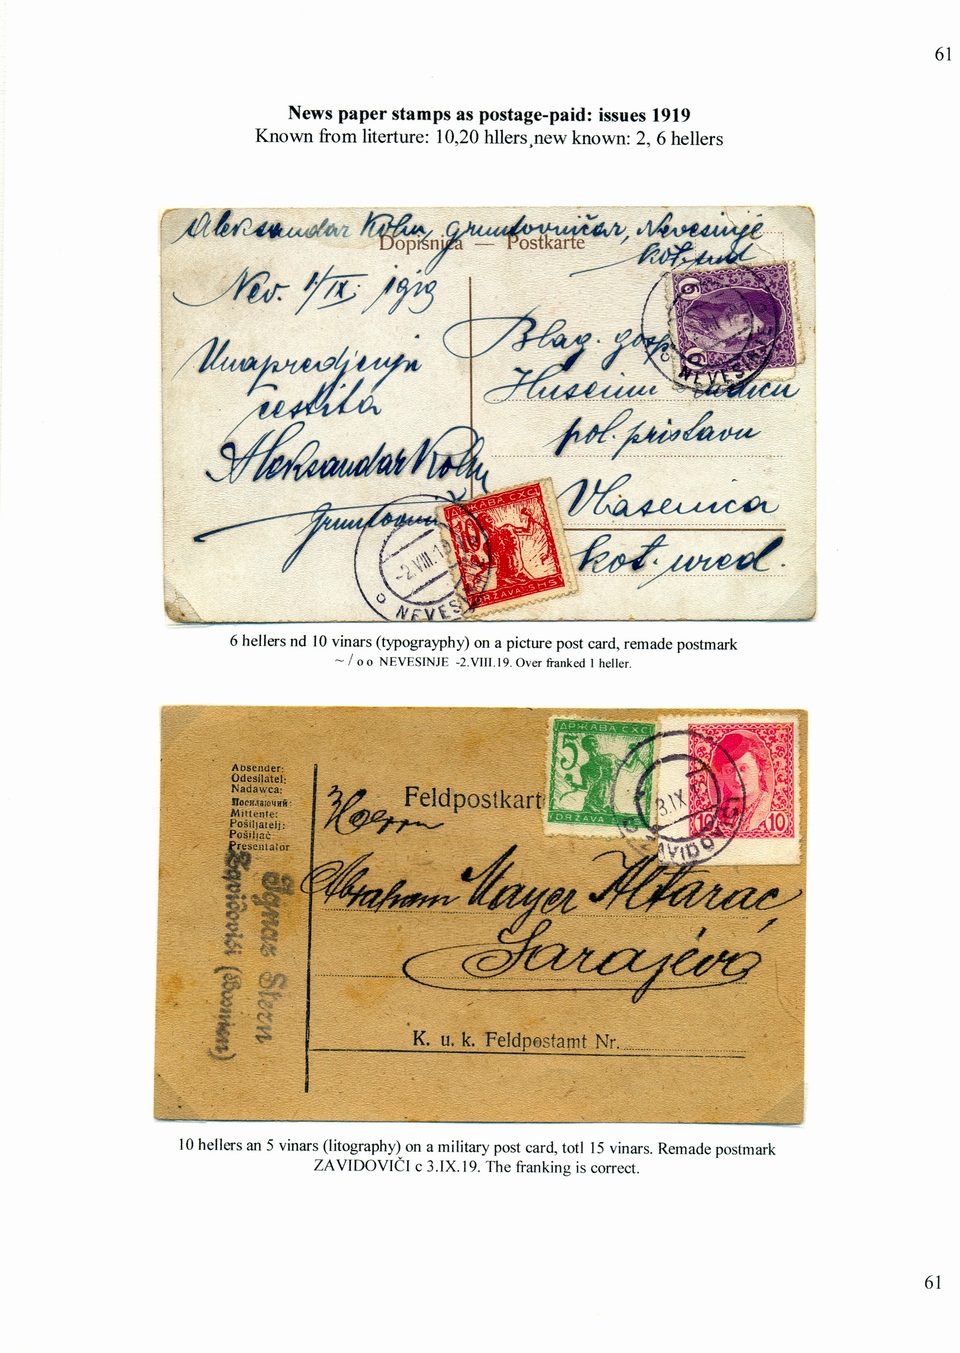 61
News paper stamps as postage-paid: issues 1919
Known from literture: 10,20 hllers,new known: 2, 6 hellers
Aleksandar Kohn, gruntovničar, Nevesinje
kot. sud
Dopisnica — Postkarte
Nev. 1/IX. 1919
6
6
NEVESINJE
Unapredjenje
čestita
Aleksandar Kohn
Blag. gosp.
Huseinu
pol. pristavu
Vlasenica
kot. ured.
ДРЖАВА СХС
10
DRŽAVA SHS
-2.VIII.1
NEVES
6 hellers nd 10 vinars (typograyphy) on a picture post card, remade postmark
~ / o o NEVESINJE -2.VIII.19. Over franked 1 heller.
Absender:
Odesílatel:
Nadawca:
Посилаючий:
Mittente:
Pošiljatelj:
Pošiljač
Presentator
Ignas Stern
Zavidovići (Bosnien)
Feldpostkart
ДРЖАВА СХС
5
DRŽAVA SHS
3.IX
10
10
Herrn
Abraham Mayer Altarac
Sarajevo
K. u. k. Feldpostamt Nr.
10 hellers an 5 vinars (litography) on a military post card, totl 15 vinars. Remade postmark
ZAVIDOVIČI c 3.IX.19. The franking is correct.
61